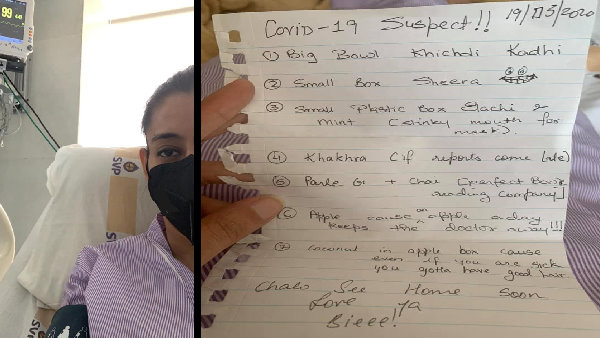 99
SVP
SVP
SVP
19/03/2020
Covid-19 Suspect!!
① Big Bowl Khichdi Kadhi
② Small Box Sheera
③ Small Plastic Box Elachi &
mint (stinky mouth for
mask).
④ Khakhra (if reports come late)
⑤ Parle G + Chai [perfect Book
reading company]
⑥ Apple cause an apple aday
keeps the doctor away!!!
⑦ coconut in apple box cause
even if you are sick
you gotta have good hair
Chalo See Home Soon
Love Ya
Bieee!